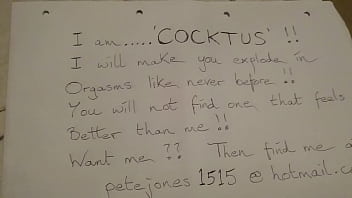 I am.....'COCKTUS' !!
I will make you explode in
Orgasms like never before !!
You will not find one that feels
Better than me !!
Want me ?? Then find me
petejones 1515 @ hotmail.c